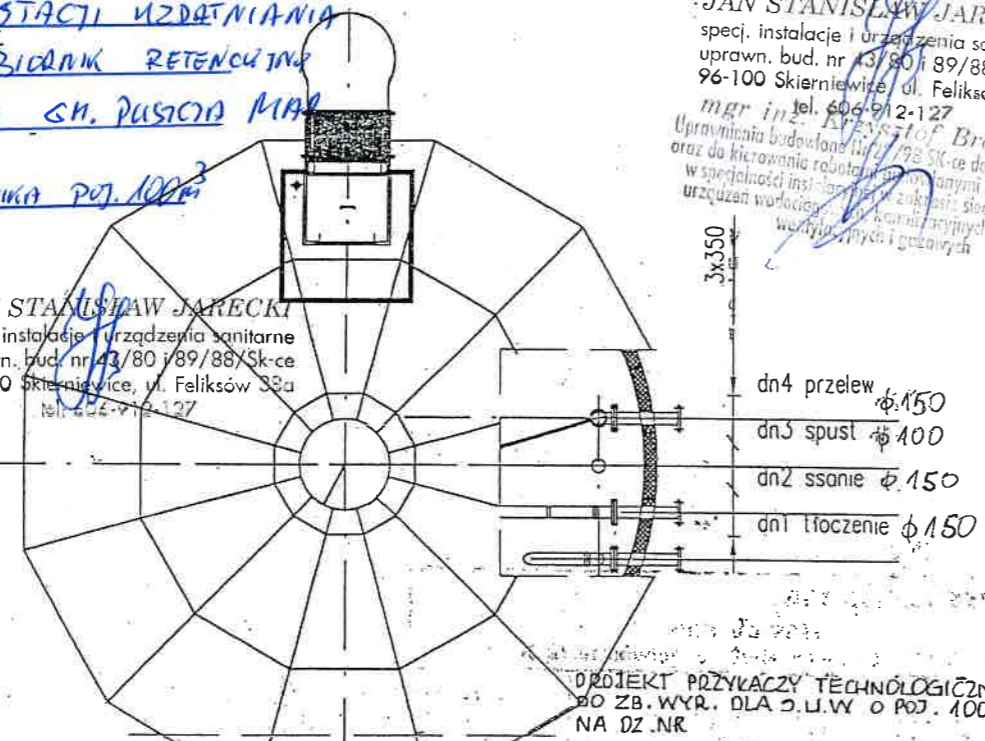 STACJI UZDATNIANIA
ZBIORNIK RETENCYJNY
GM. PUSZCZA MAR
POJ. 100m³
JAN STANISŁAW JAR
specj. instalacje i urządzenia sa
uprawn. bud. nr 43/80 i 89/88
96-100 Skierniewice, ul. Feliksó
tel. 606-912-127
mgr inż. Krzysztof Bro
Uprawnienia budowlane SK-ce do
oraz do kierowania robotami
w specjalności w zakresie siec
urządzeń
wentylacyjnych i gazowych
STANISŁAW JARECKI
instalacje i urządzenia sanitarne
n. bud. nr 43/80 i 89/88/Sk-ce
0 Skierniewice, ul. Feliksów 38a
tel. 606-912-127
3x350
dn4 przelew ϕ150
dn3 spust ϕ100
dn2 ssanie ϕ150
dn1 tłoczenie ϕ150
PROJEKT PRZYŁĄCZY TECHNOLOGICZN
DO ZB. WYR. DLA S.U.W O POJ. 100
NA DZ. NR